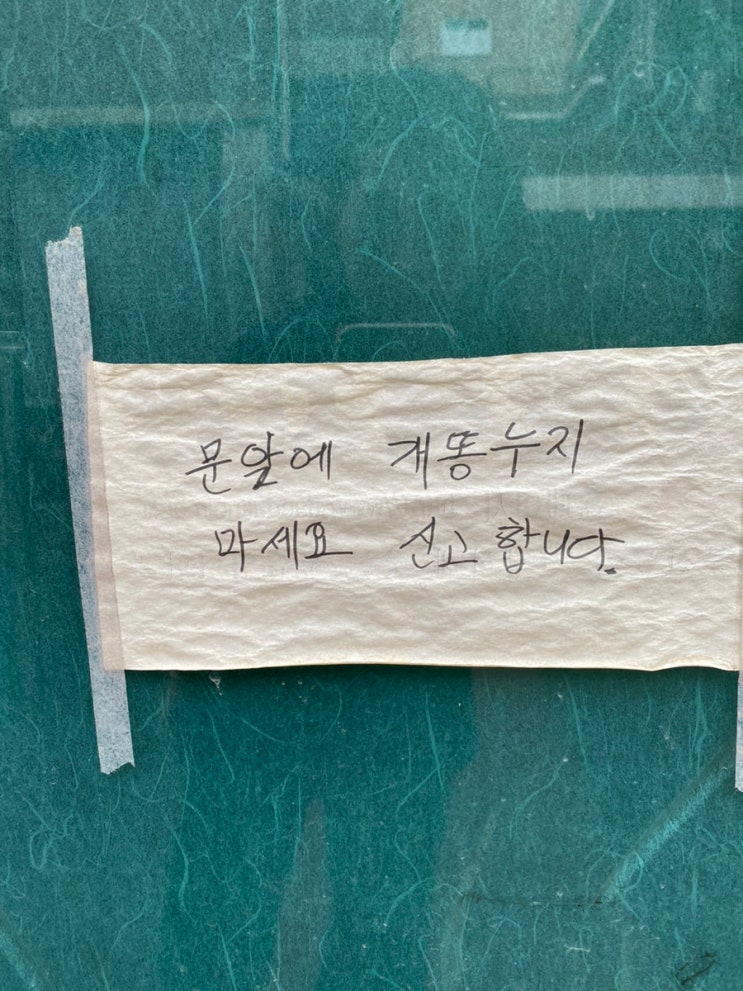 문앞에 개똥누지
마세요 신고합니다.